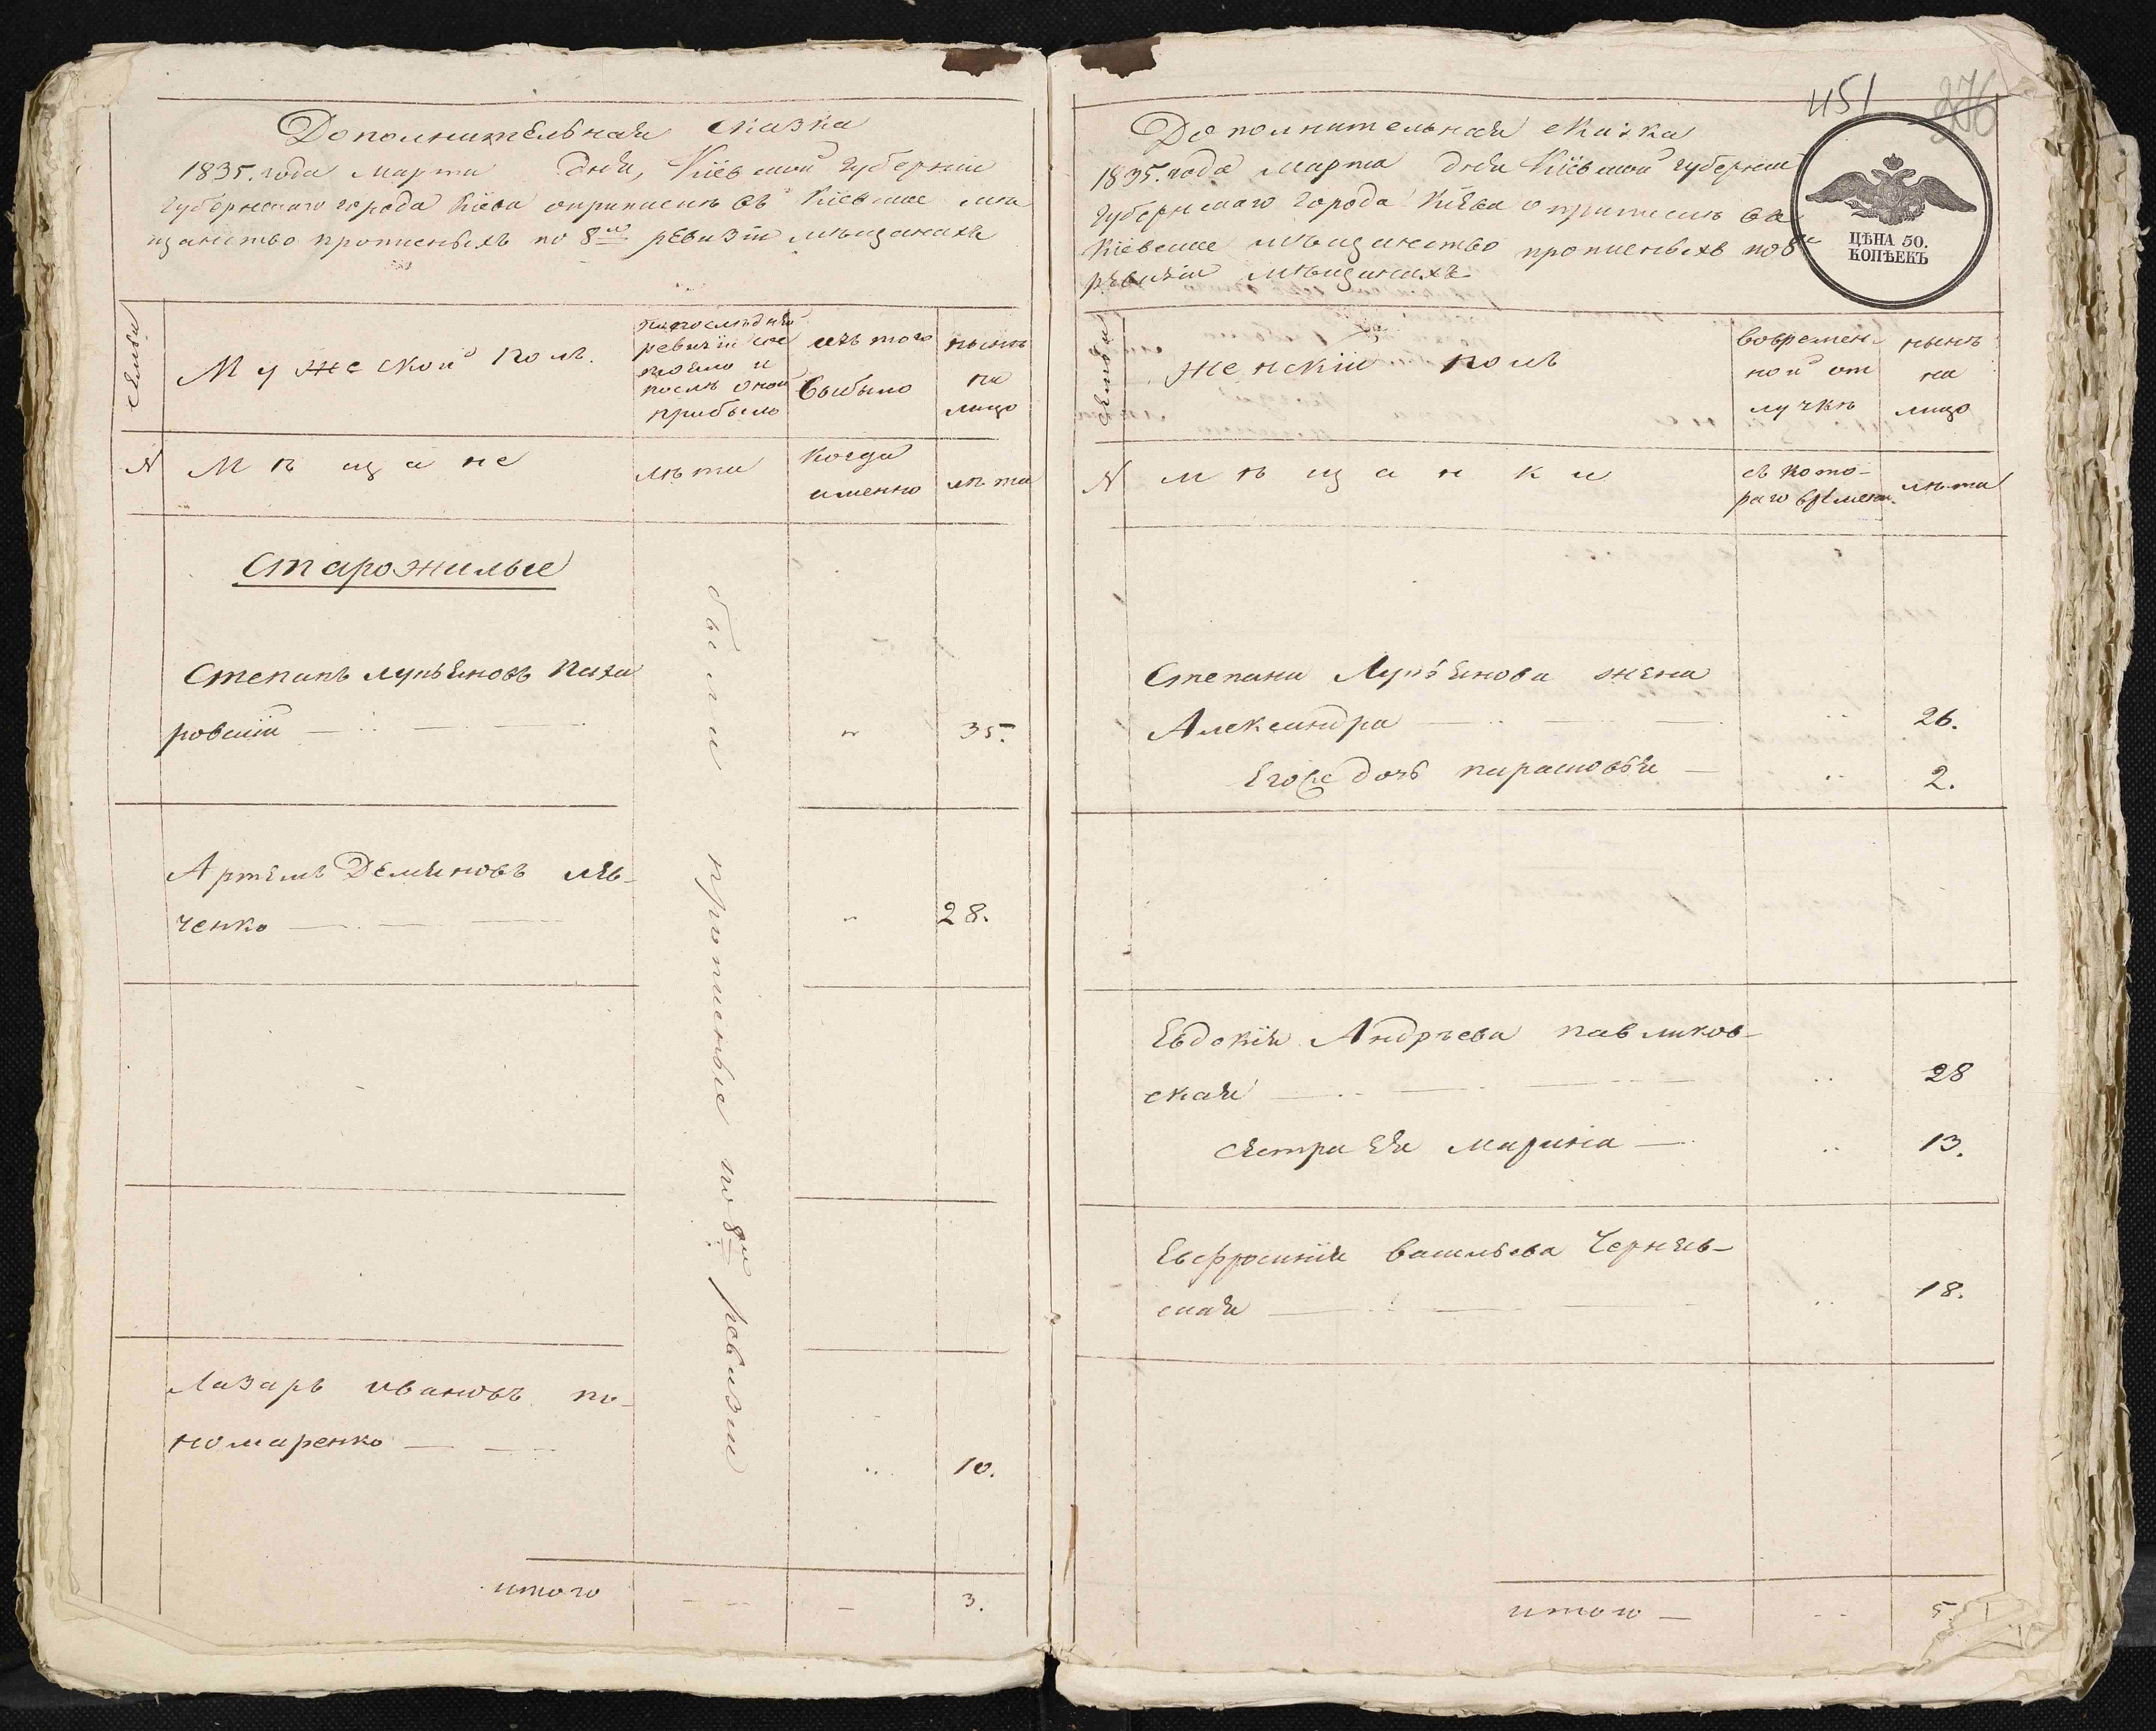 Дополнительная сказка
1835. года марта дня, Кіевской губерніи
губернскаго города Кіева о приписн въ Кіевское мѣ
щанство прописныхъ по 8й ревизіи мѣщанахъ
Семьи
Мужеской полъ.
по последней
ревизіи сос
тояло и
послѣ оной
прибыло
изъ того
выбыло
нынѣ
на
лицо
N
Мѣщане
лѣта
когда
именно
лѣта
Старожилые
Степанъ Лупьяновъ Каха
ровскій
35.
Артемъ Демяновъ Лев-
ченко
28.
были прописные по 8й ревизіи
Лазарь Ивановъ по-
номаренко
10.
итого
3.
451
276
Дополнительная сказка
1835. года марта дня Кіевской губерніи
губернскаго города Кіева о приписн въ
Кіевское мѣщанство прописныхъ по 8й
ревизіи мѣщанахъ
ЦѢНА 50.
КОПѢЕКЪ
Семьи
женскій полъ
вовремен-
ной от
лучкѣ
нынѣ
на
лицо
N
мѣщанки
съ кото-
раго времени
лѣта
Степана Лупьянова жена
Александра
26.
Егоже дочь парасковья
2.
Евдокія Андрѣева павликов-
ская
28
сестра Ея Марина
13.
Евфросинія васильева Черняв-
ская
18.
итого
5.